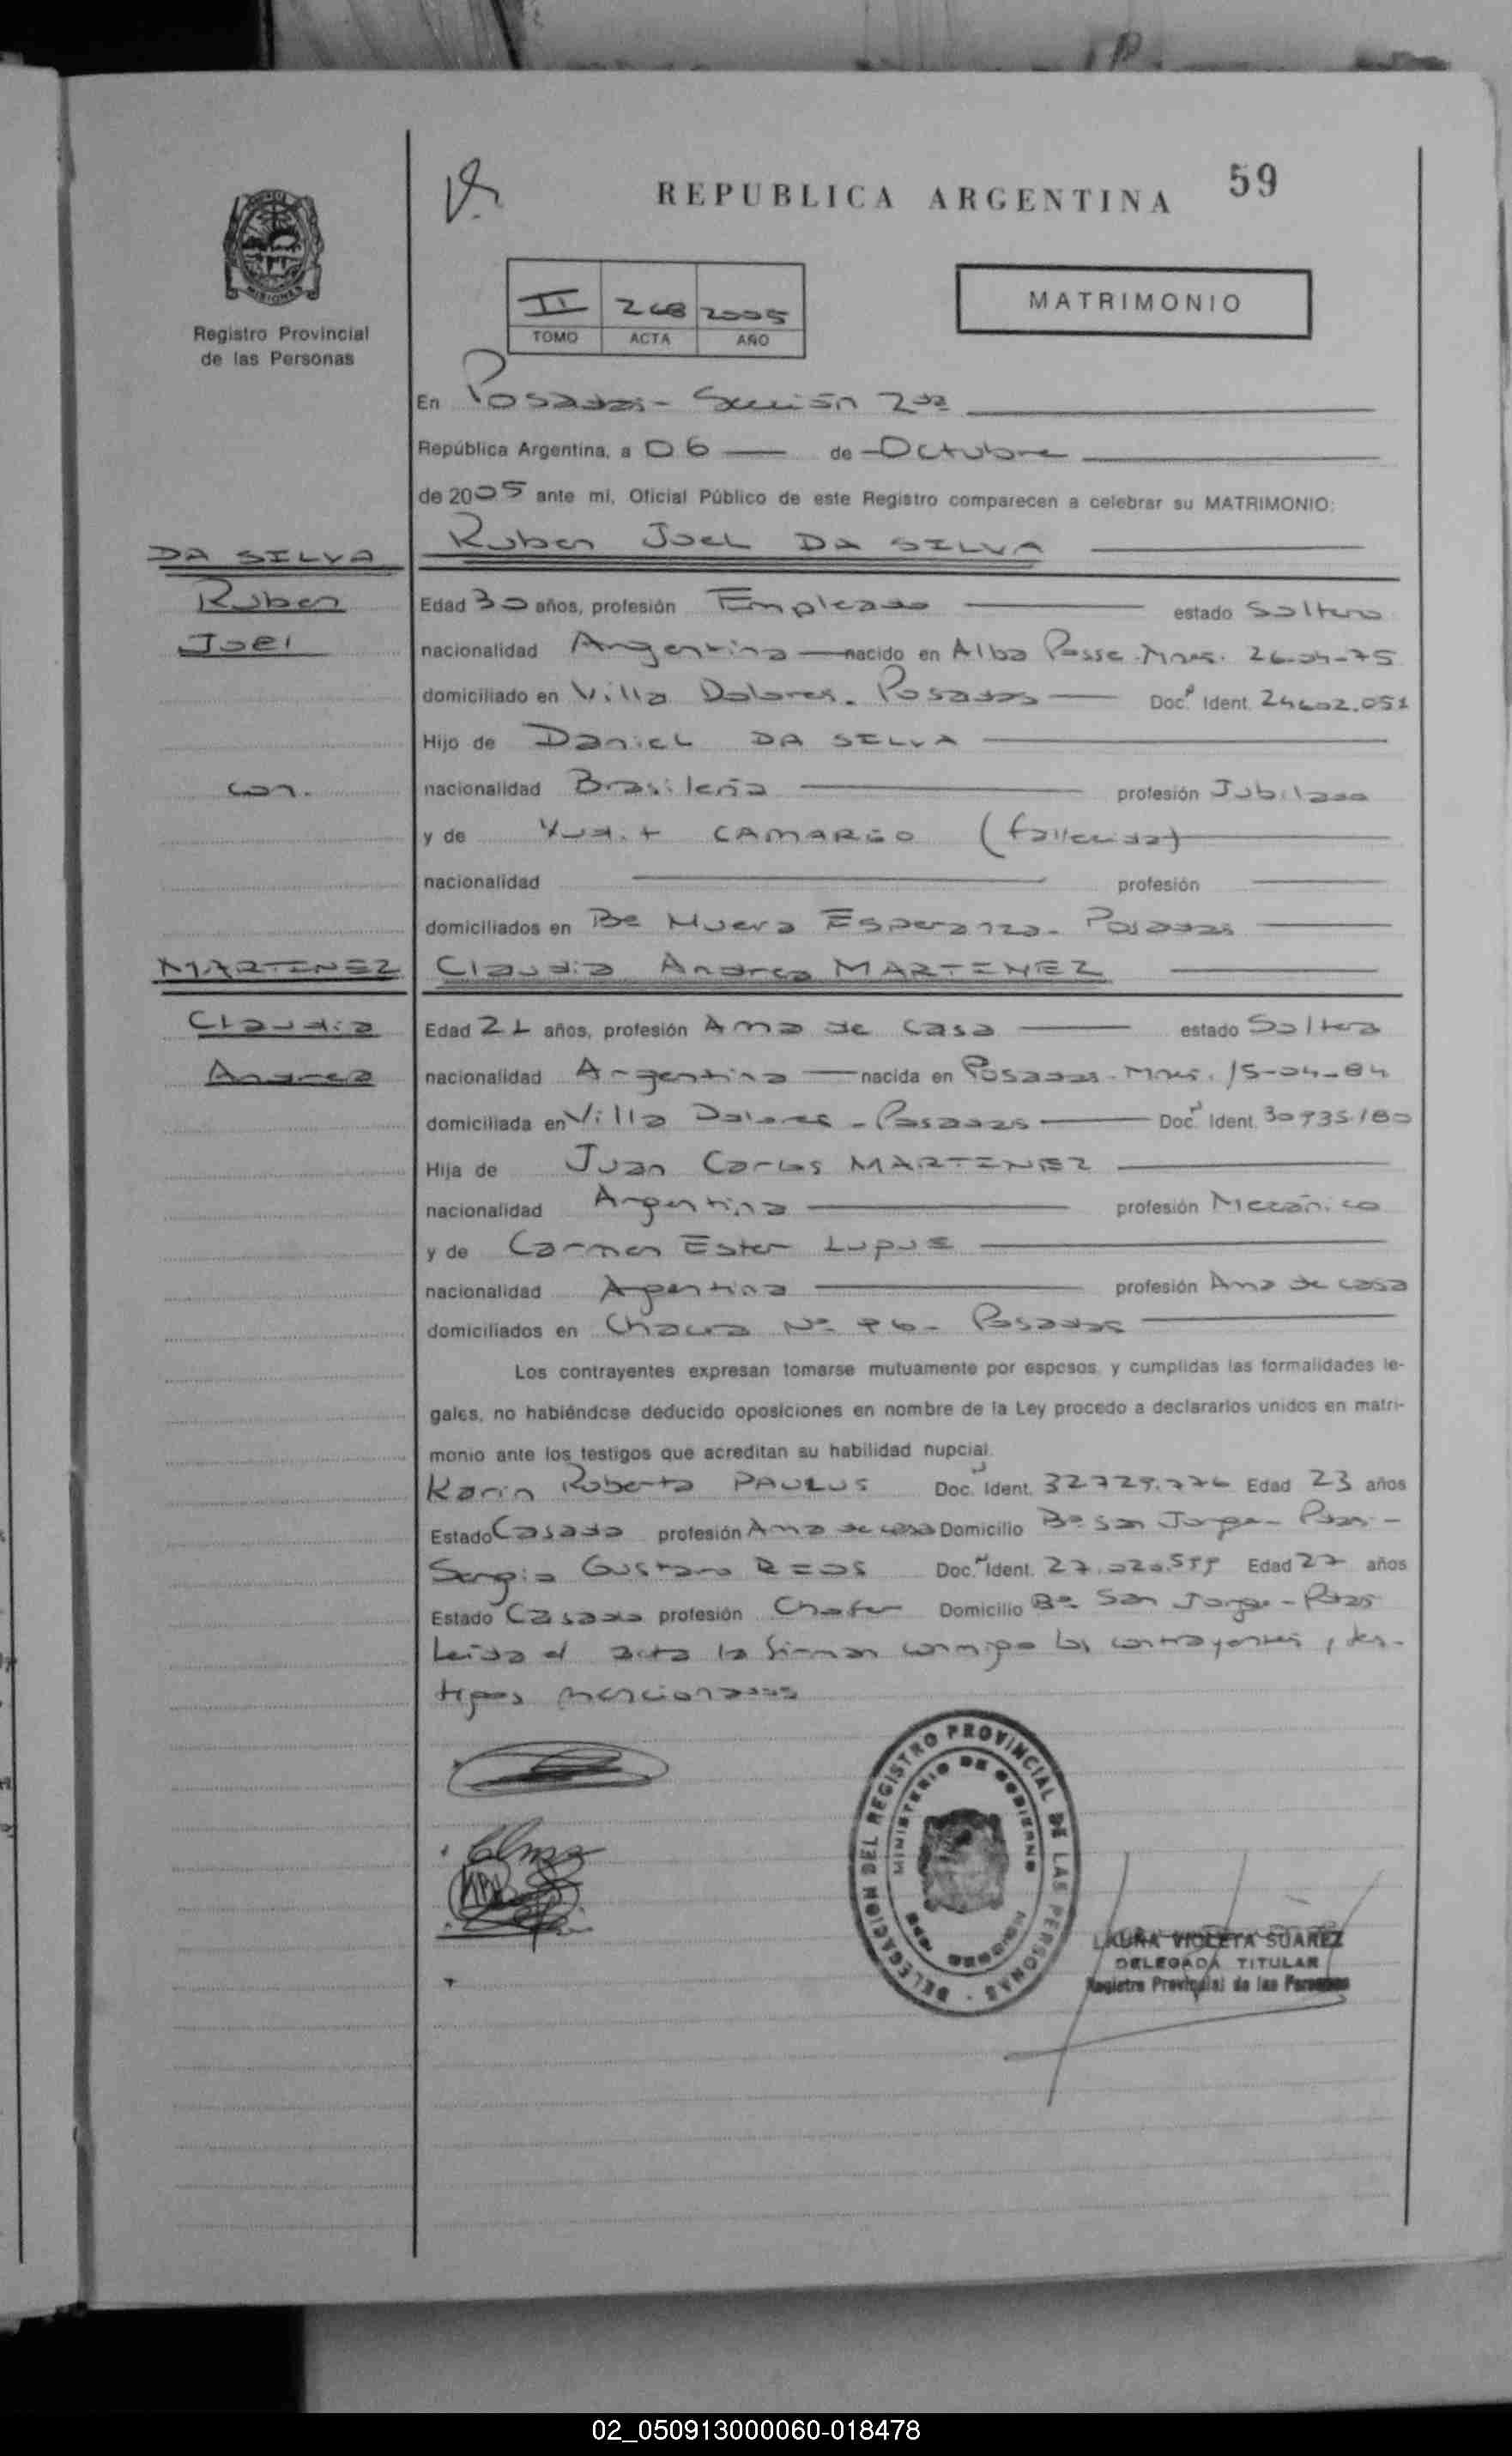 59
REPUBLICA ARGENTINA
MISIONES
Registro Provincial
de las Personas
II 268 2005
TOMO ACTA AÑO
MATRIMONIO
En Posadas - Sección 2da
República Argentina, a 06 de Octubre
de 2005 ante mí, Oficial Público de este Registro comparecen a celebrar su MATRIMONIO:
DA SILVA
Ruben
Joel
Ruben Joel DA SILVA
Edad 30 años, profesión Empleado estado Soltero
nacionalidad Argentina nacido en Alba Posse. Mnes. 26-04-75
domiciliado en Villa Dolores. Posadas Doc. Ident. 24602.051
Hijo de Daniel DA SILVA
con.
nacionalidad Brasileña profesión Jubilado
y de Yudit CAMARGO (fallecida)
nacionalidad profesión
domiciliados en Bº Nueva Esperanza. Posadas
MARTINEZ
Claudia
Andrea
Claudia Andrea MARTINEZ
Edad 21 años, profesión Ama de casa estado Soltera
nacionalidad Argentina nacida en Posadas. Mnes. 15-04-84
domiciliada en Villa Dolores - Posadas Doc. Ident. 30935.180
Hija de Juan Carlos MARTINEZ
nacionalidad Argentina profesión Mecánico
y de Carmen Ester
nacionalidad Argentina profesión Ama de casa
domiciliados en Chacra Nº 96- Posadas
Los contrayentes expresan tomarse mutuamente por esposos, y cumplidas las formalidades le-
gales, no habiéndose deducido oposiciones en nombre de la Ley procedo a declararlos unidos en matri-
monio ante los testigos que acreditan su habilidad nupcial.
Karin Roberta PAULUS Doc. Ident. 32729.776 Edad 23 años
Estado Casada profesión Ama de casa Domicilio Bº San Jorge - Pdas -
Sergio Gustavo RIOS Doc. Ident. Edad 27 años
Estado Casado profesión Chofer Domicilio Bº San Jorge - Pdas
Leída el acta la firman conmigo los contrayentes y tes-
tigos mencionados
DELEGACION DEL REGISTRO PROVINCIAL DE LAS PERSONAS
MINISTERIO DE GOBIERNO
LAURA VIOLETA SUAREZ
DELEGADA TITULAR
Registro Provincial de las Personas
02_050913000060-018478